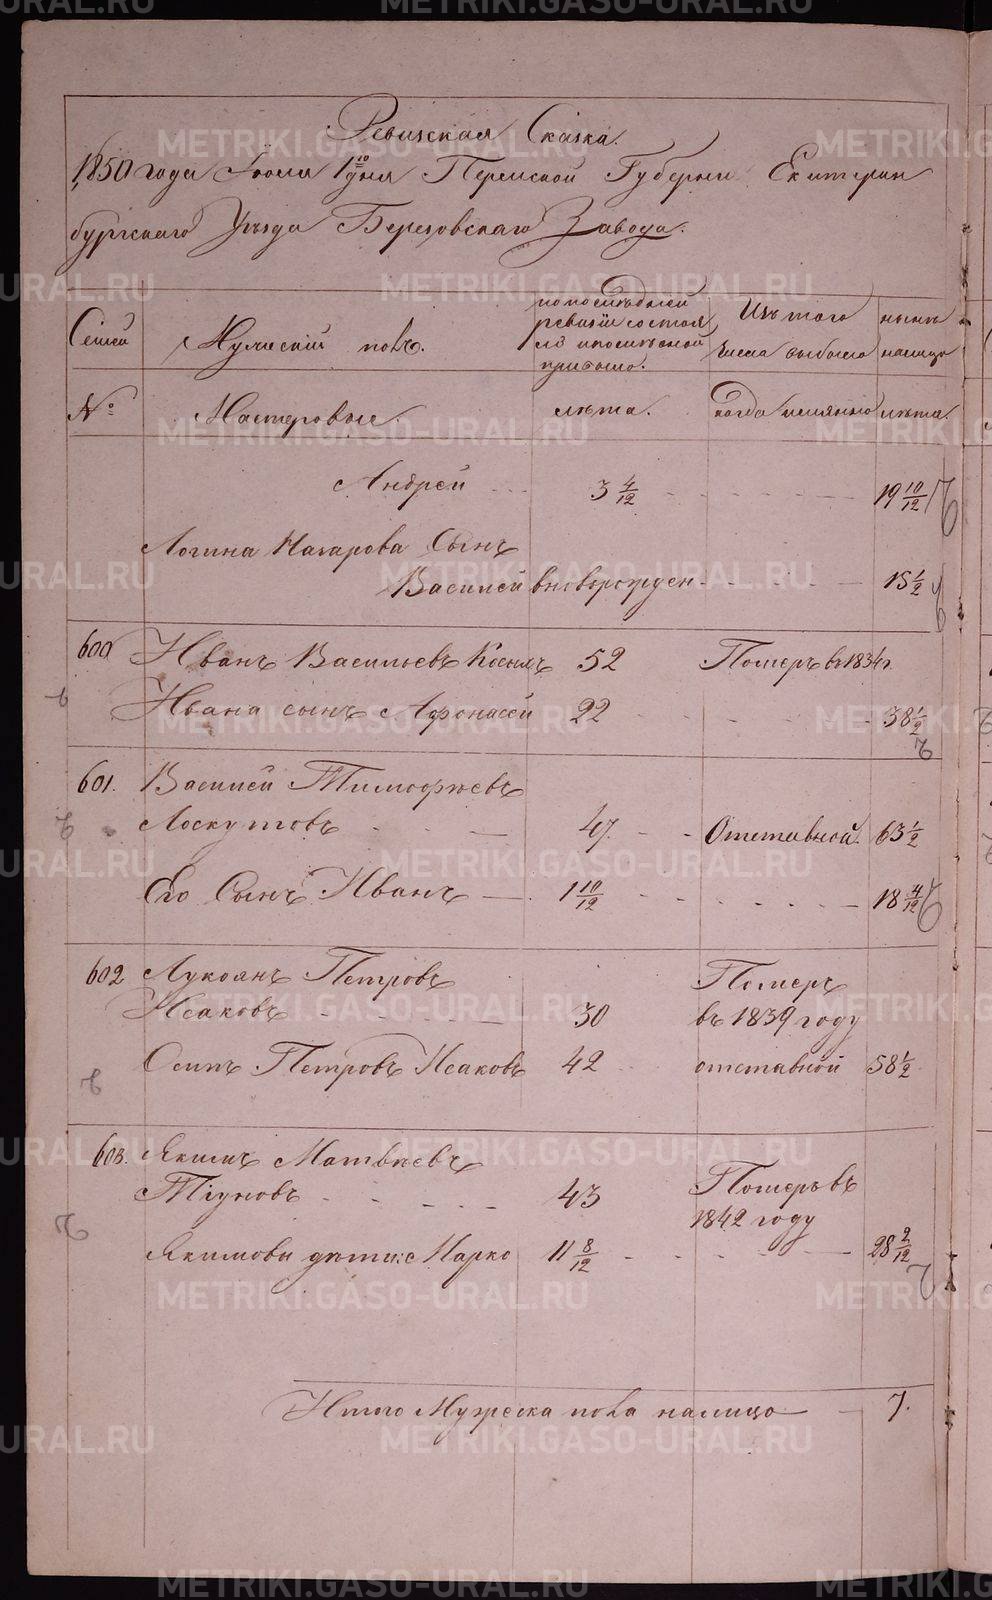 Ревизская Сказка.
1850 года Июля 1го дня Пермской Губернии Екатерин
бургскаго Уезда Березовскаго Завода.
Семьи Мужеский полъ. по последней Изъ того ныне
ревизіи состоя числа выбыло налицо
ло и после оной
прибыло.
№ Мастеровые. лета. когда именно лета
Андрей 3 4/12 19 10/12
Логина Назарова Сынъ
Василей вновьрожден 15 1/2
600 Иванъ Васильевъ 52 Померъ в 1834 г.
Ивана сынъ Афонасей 22 38 1/2
601. Василей Тимофѣевъ
Лоскутовъ 47. Отставной. 63 1/2
Его Сынъ Иванъ 1 10/12 18 4/12
602 Лукоянъ Петровъ Померъ
Исаковъ 30 въ 1839 году
Осипъ Петровъ Исаковъ 42 отставной 58 1/2
603. Якимъ Матвѣевъ
Тіуновъ 43 Померъ въ
1842 году
Якимовы дѣти: Марко 11 8/12 28 2/12
Итого Мужеска пола налицо 7.
METRIKI.GASO-URAL.RU